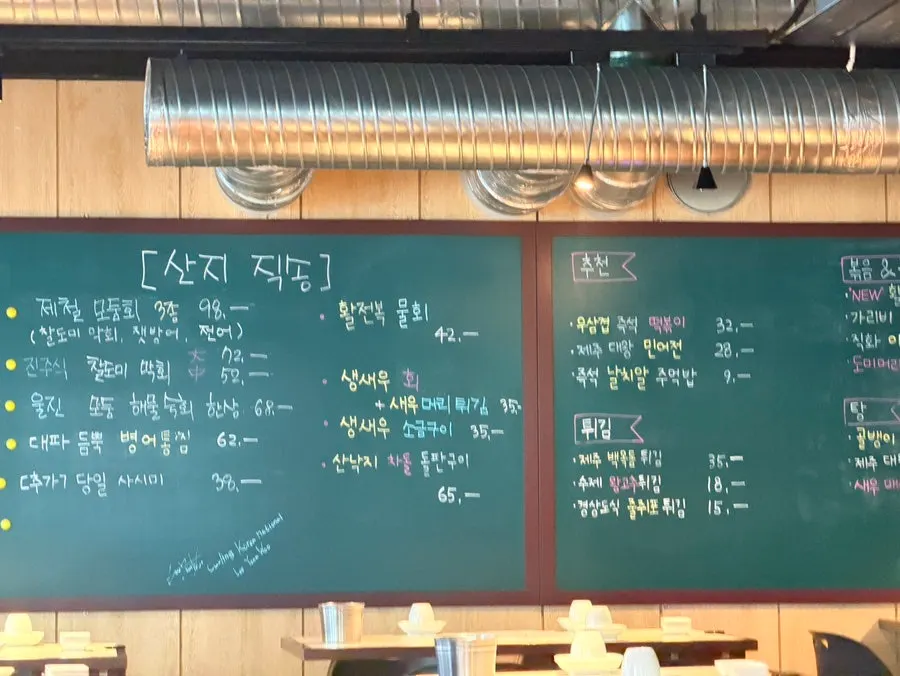 [산지 직송]
제철 모둠회 3종 98,—
(찰도미 막회, 잿방어, 전어)
진주식 찰도미 막회 大 72,—
中 52,—
울진 모둠 해물숙회 한상 68,—
대파 듬뿍 병어통찜 62,—
[추가] 당일 사시미 38,—
Curling Korea National
활전복 물회
42,—
생새우 회
+ 새우머리 튀김 35,—
생새우 소금구이 35,—
산낙지 차돌 돌판구이
65,—
추천
우삼겹 즉석 떡볶이 32,—
제주 대왕 민어전 28,—
즉석 날치알 주먹밥 9,—
튀김
제주 백옥돔 튀김 35,—
수제 왕고추튀김 18,—
경상도식 쫄쥐포 튀김 15,—
볶음 &
NEW
가리비
직화
도미머리
탕
골뱅이
제주 대
새우